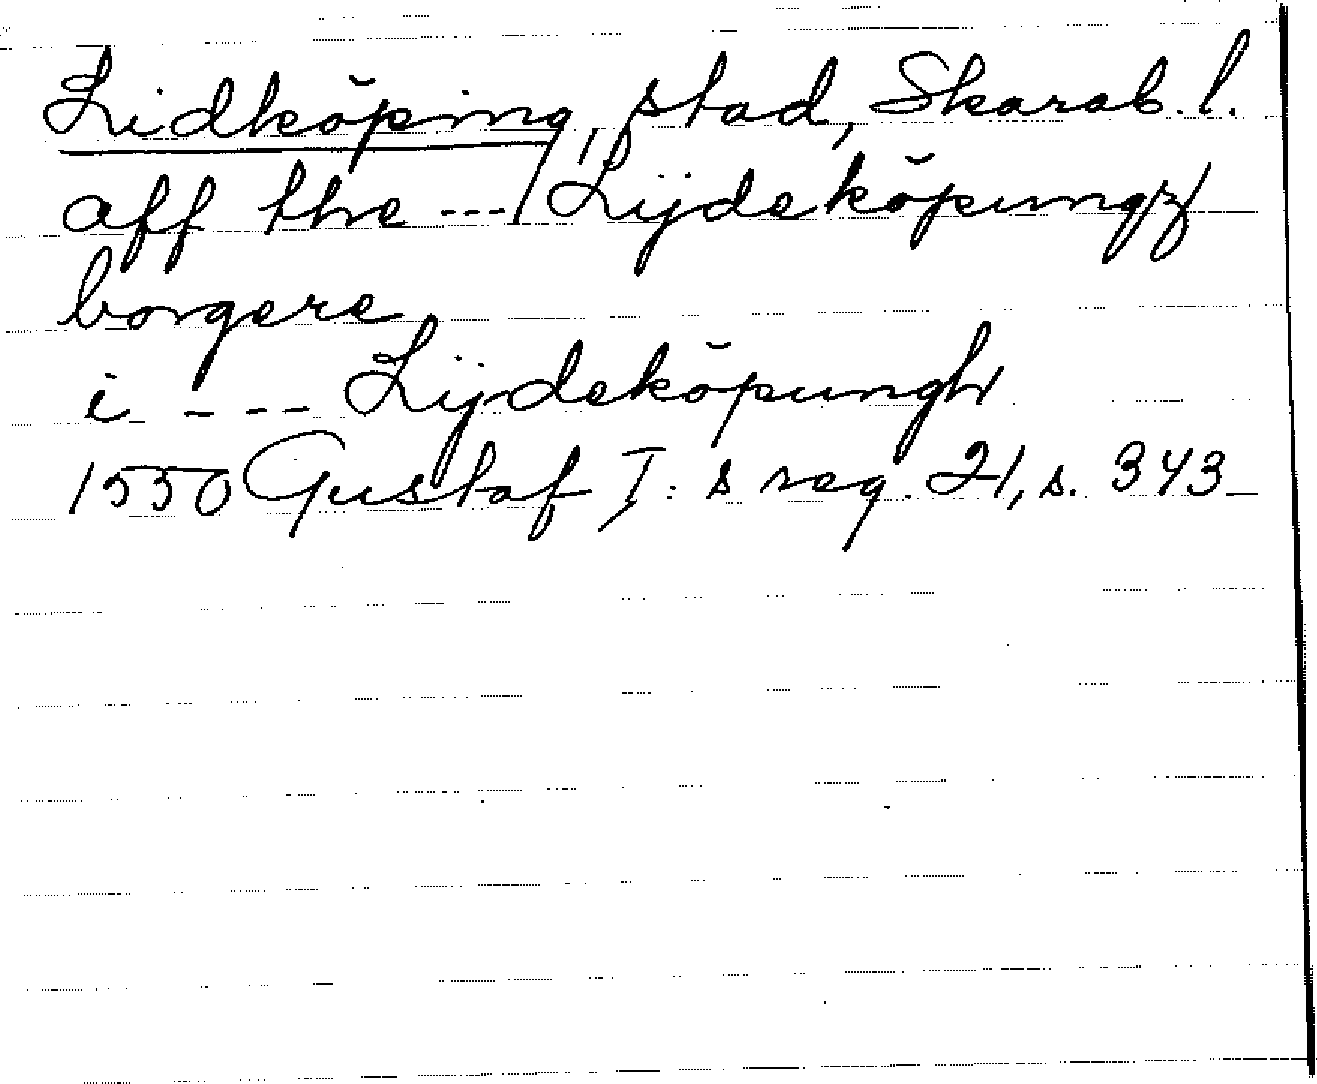 Lidköping, stad, Skarab. l.
aff the --- Lÿdeköpungz
borgere
i --- Lÿdeköpungh
1550 Gustaf I:s reg. 21, s. 343